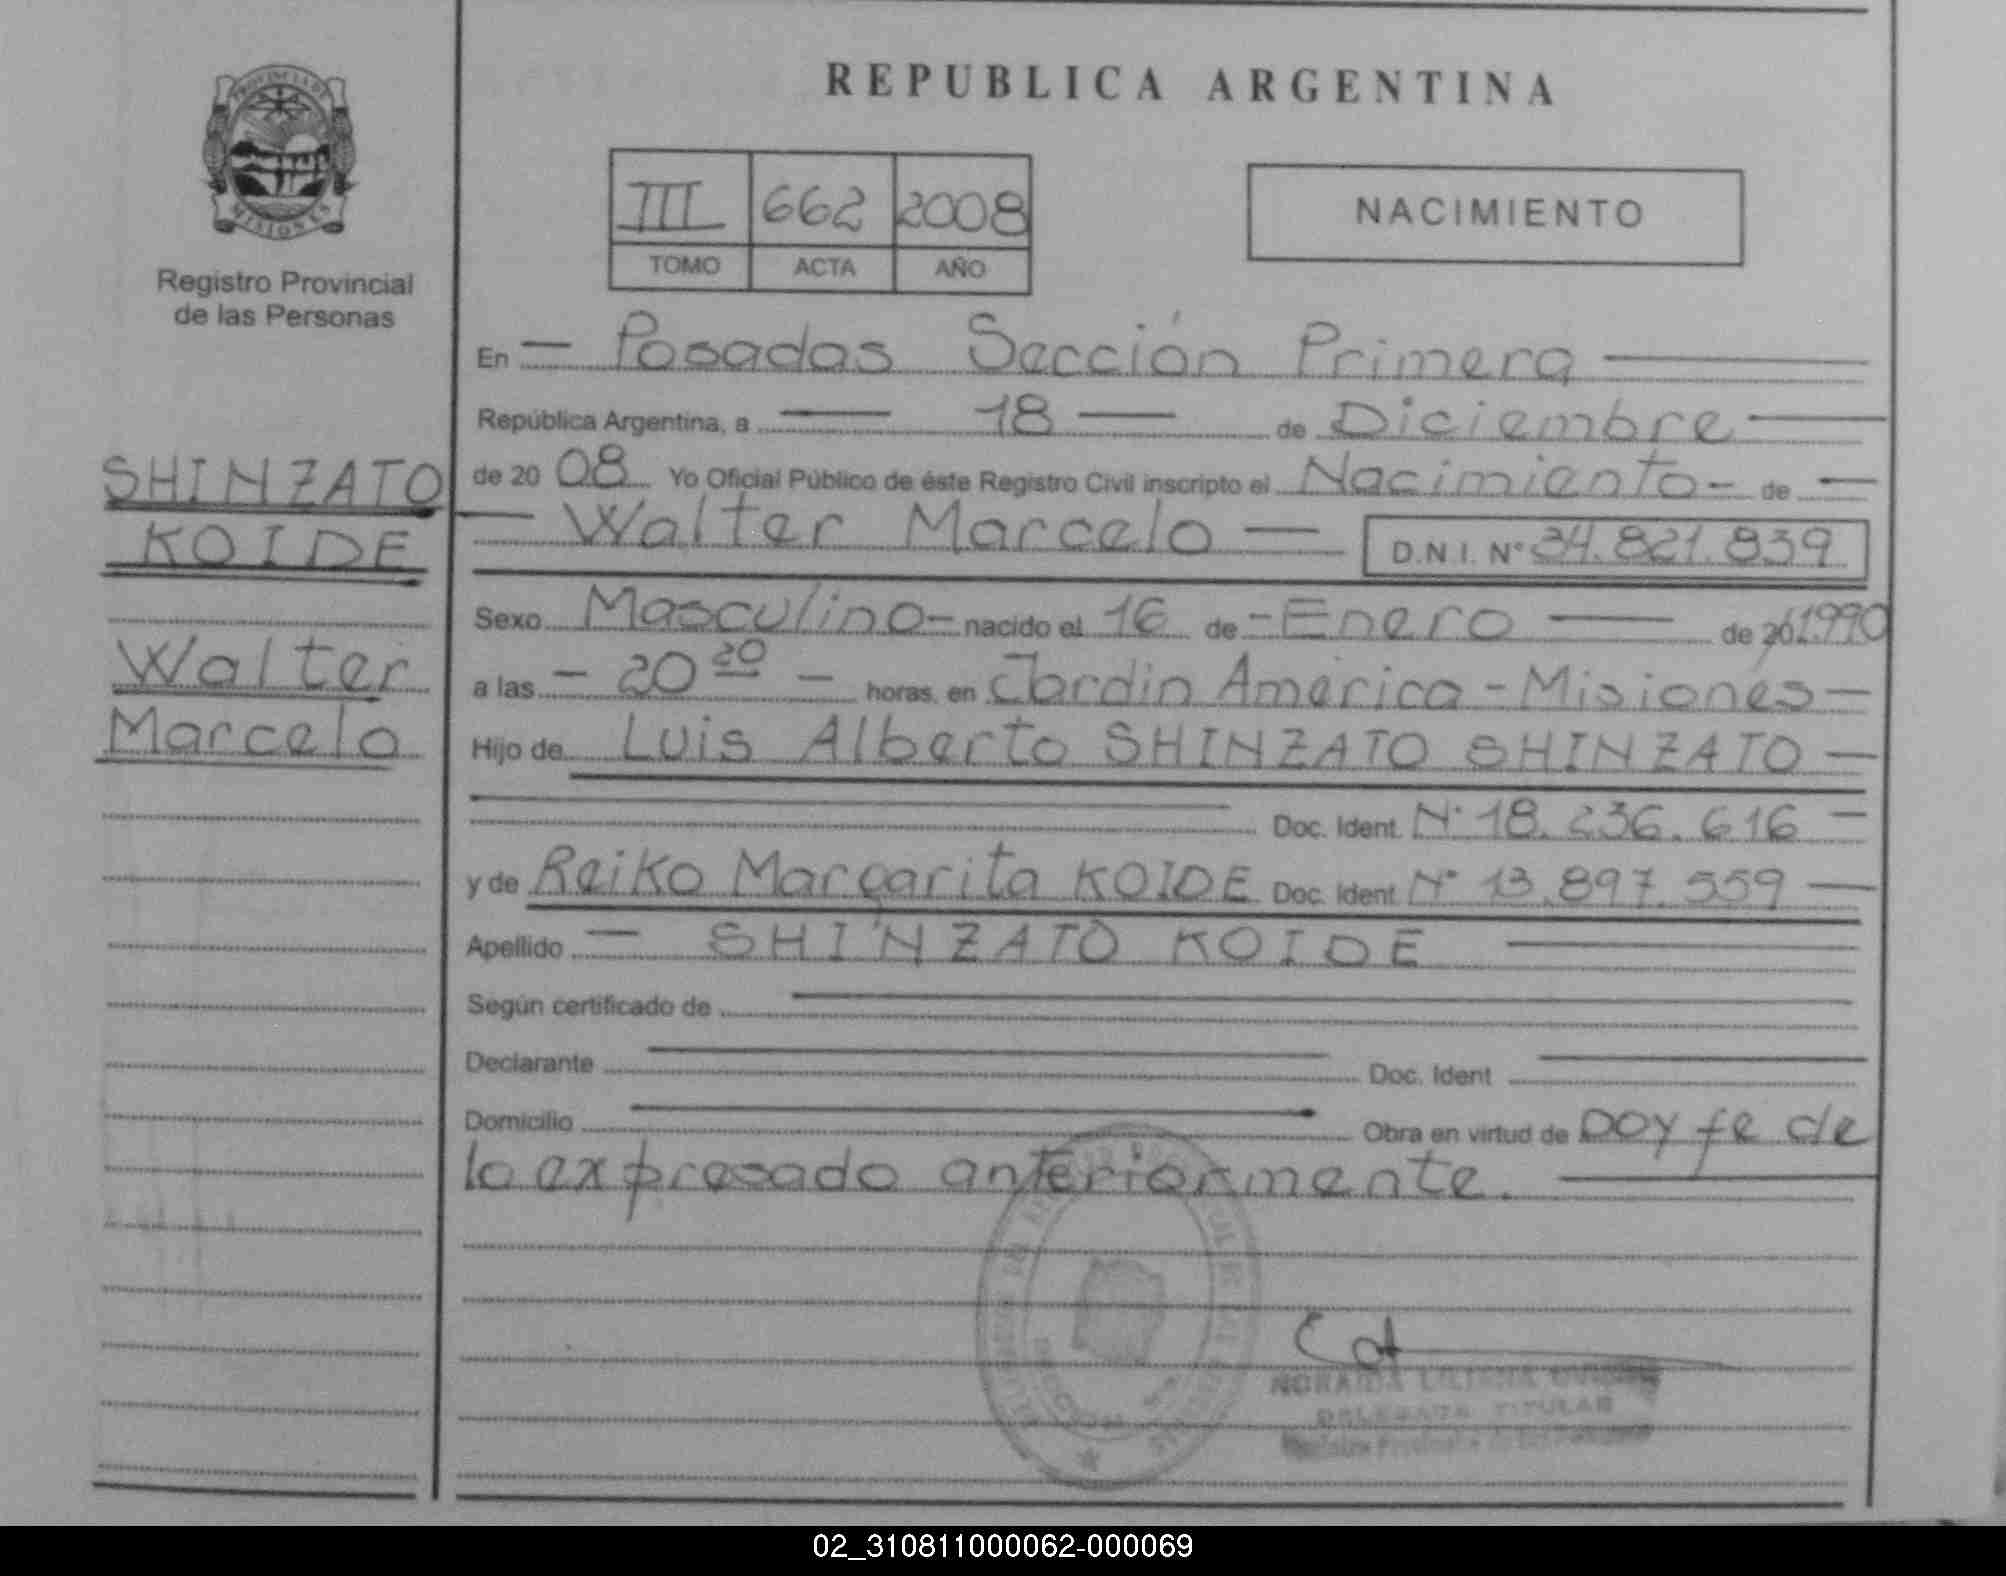 PROVINCIA DE
MISIONES
Registro Provincial
de las Personas
SHINZATO
KOIDE
Walter
Marcelo
REPUBLICA ARGENTINA
III 662 2008
TOMO ACTA AÑO
NACIMIENTO
En — Posadas Sección Primera —
República Argentina, a — 18 — de Diciembre —
de 2008 Yo Oficial Público de éste Registro Civil inscripto el Nacimiento - de —
— Walter Marcelo — D.N.I. Nº 34.821.839
Sexo Masculino - nacido el 16 de - Enero — de 20 1990
a las - 20 20 - horas, en Jardin América - Misiones -
Hijo de Luis Alberto SHINZATO SHINZATO -
Doc. Ident. Nº 18.236.616 -
y de Reiko Margarita KOIDE Doc. Ident. Nº 13.897.559 —
Apellido — SHINZATO KOIDE —
Según certificado de —
Declarante — Doc. Ident —
Domicilio — Obra en virtud de DOY fe de
lo expresado anteriormente. —
DELEGADA TITULAR
02_310811000062-000069